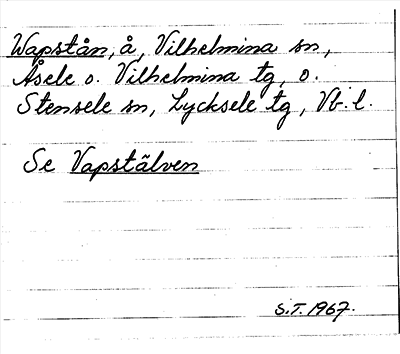 Wapstån, å, Vilhelmina sn,
Åsele o. Vilhelmina tg, o.
Stensele sn, Lycksele tg, Vb. l.
Se Vapstälven
S.T. 1967.